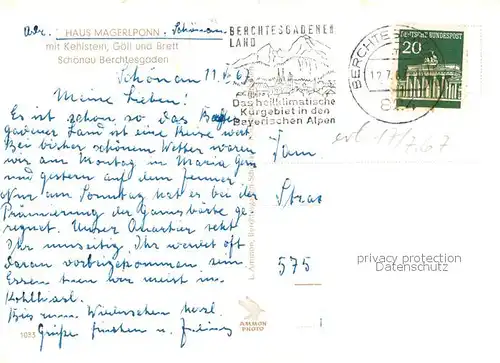 Adr. HAUS MAGERLPONN, Schönau
mit Kehlstein, Göll und Brett
Schönau Berchtesgaden
BERCHTESGADENER
LAND
Das heilklimatische
Kurgebiet in den
Bayerischen Alpen
BERCHTES
12.7.6
824
DEUTSCHE BUNDESPOST
20
Schönau 11.7.67
Meine Lieben!
Es ist schon so, das Berchtes-
gadener Land ist eine Reise wert.
Bei bisher schönem Wetter waren
wir am Montag in Maria Gern
und gestern auf dem Jenner.
Nur am Sonntag hat es bei der
Prämierung der Gamsbärte ge-
regnet. Unser Quartier seht
Ihr umseitig. Ihr werdet oft
daran vorbeigekommen sein.
Essen tun wir meist im
Kohlhiasl.
Bis zum Wiedersehen herzl.
Grüße
17/7.67
Fam.
Stras
575
privatsammlung
Datenschutz
AMMON
PHOTO
1033